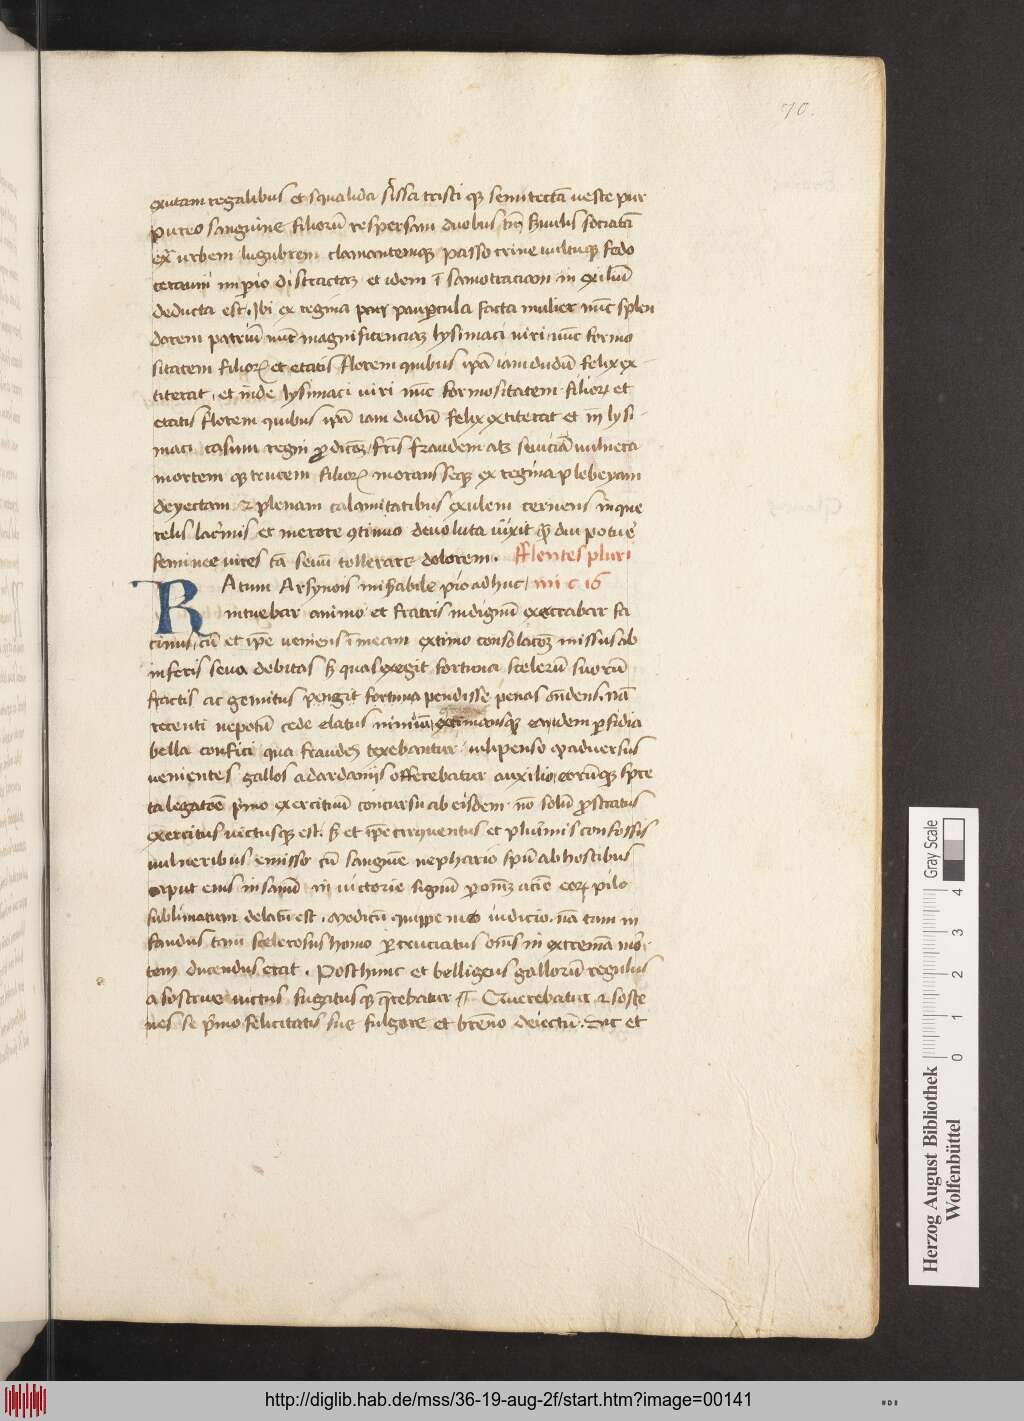 70.
exutam regalibus et squalida scissa tristi q semitectā ueste pur
pureo sanguine filiorū respersam duobus tm̄ suulis sociatā
extra urbem lugubrem clamantemq passo crine uultuq fedo
et idem ī samotraciam in exiliū
deducta est. Ibi ex regina paupercula facta mulier nūc splen
dorem patriū nūc magnificenciaz lysimaci uiri nūc formo
sitatem filioꝝ et etatis florem quibus ipā iam dudū felix ex
titerat, et inde lysimaci uiri nūc formositatem filioꝝ et
etatis florem quibus ipā iam dudū felix extiterat et in lysi
maci casum regni fr̄is fraudem atz seuiciā uulnera
mortem q trucem filioꝝ seq ex regina plebeyam
deyectam et plenam calamitatibus exulem cernens in que
relis lacrimis et merore ꝯtinuo deuoluta uixit diu potue
feminee uires tā seuū tollerare dolorem. fflentes pluri
RAtum Arsynois misabile pio adhuc, mi c 16
intuebar animo et fratris indignū execrabar fa
cinus, cū et ip̄e ueniens ī meam extimo consolacōz missus ab
inferis seua debitas qual exegit fortuna scelerū suorū
fractis ac gemitus fortuna pendisse penas ondens. nā
recenti nepotū cede elatus nimiū eandem perfidia
bella confici qua fraudes texebantur uilipenso aduersus
uenientes gallos a dardanijs offerebatur auxilio, eorūq spre
ta legatōe pimo exercitiū concursu ab eisdem no solū prostratus
exercitus uictusq est. s et ip̄e circuentus et plurimis confossis
uulneribus emisso cū sanguīe nephario spū ab hostibus
caput eius insanū in uictorie signū p om̄ez aciē eoꝝ pilo
sublimatum delatū est. modicū quippe meo iudicio. nā tam in
fandus tam scelerosus homo pcruciatus om̄s in extremā mor
tem ducendus erat. Posthunc et belligeus gallorū regulus
a sostene uictus fugatus q querebatur ¶ Querebatur et soste
nes se pimo felicitatis sue fulgore et breno deiectū. dic et
Herzog August Bibliothek
Wolfenbüttel
Gray Scale
0 1 2 3 4
http://diglib.hab.de/mss/36-19-aug-2f/start.htm?image=00141